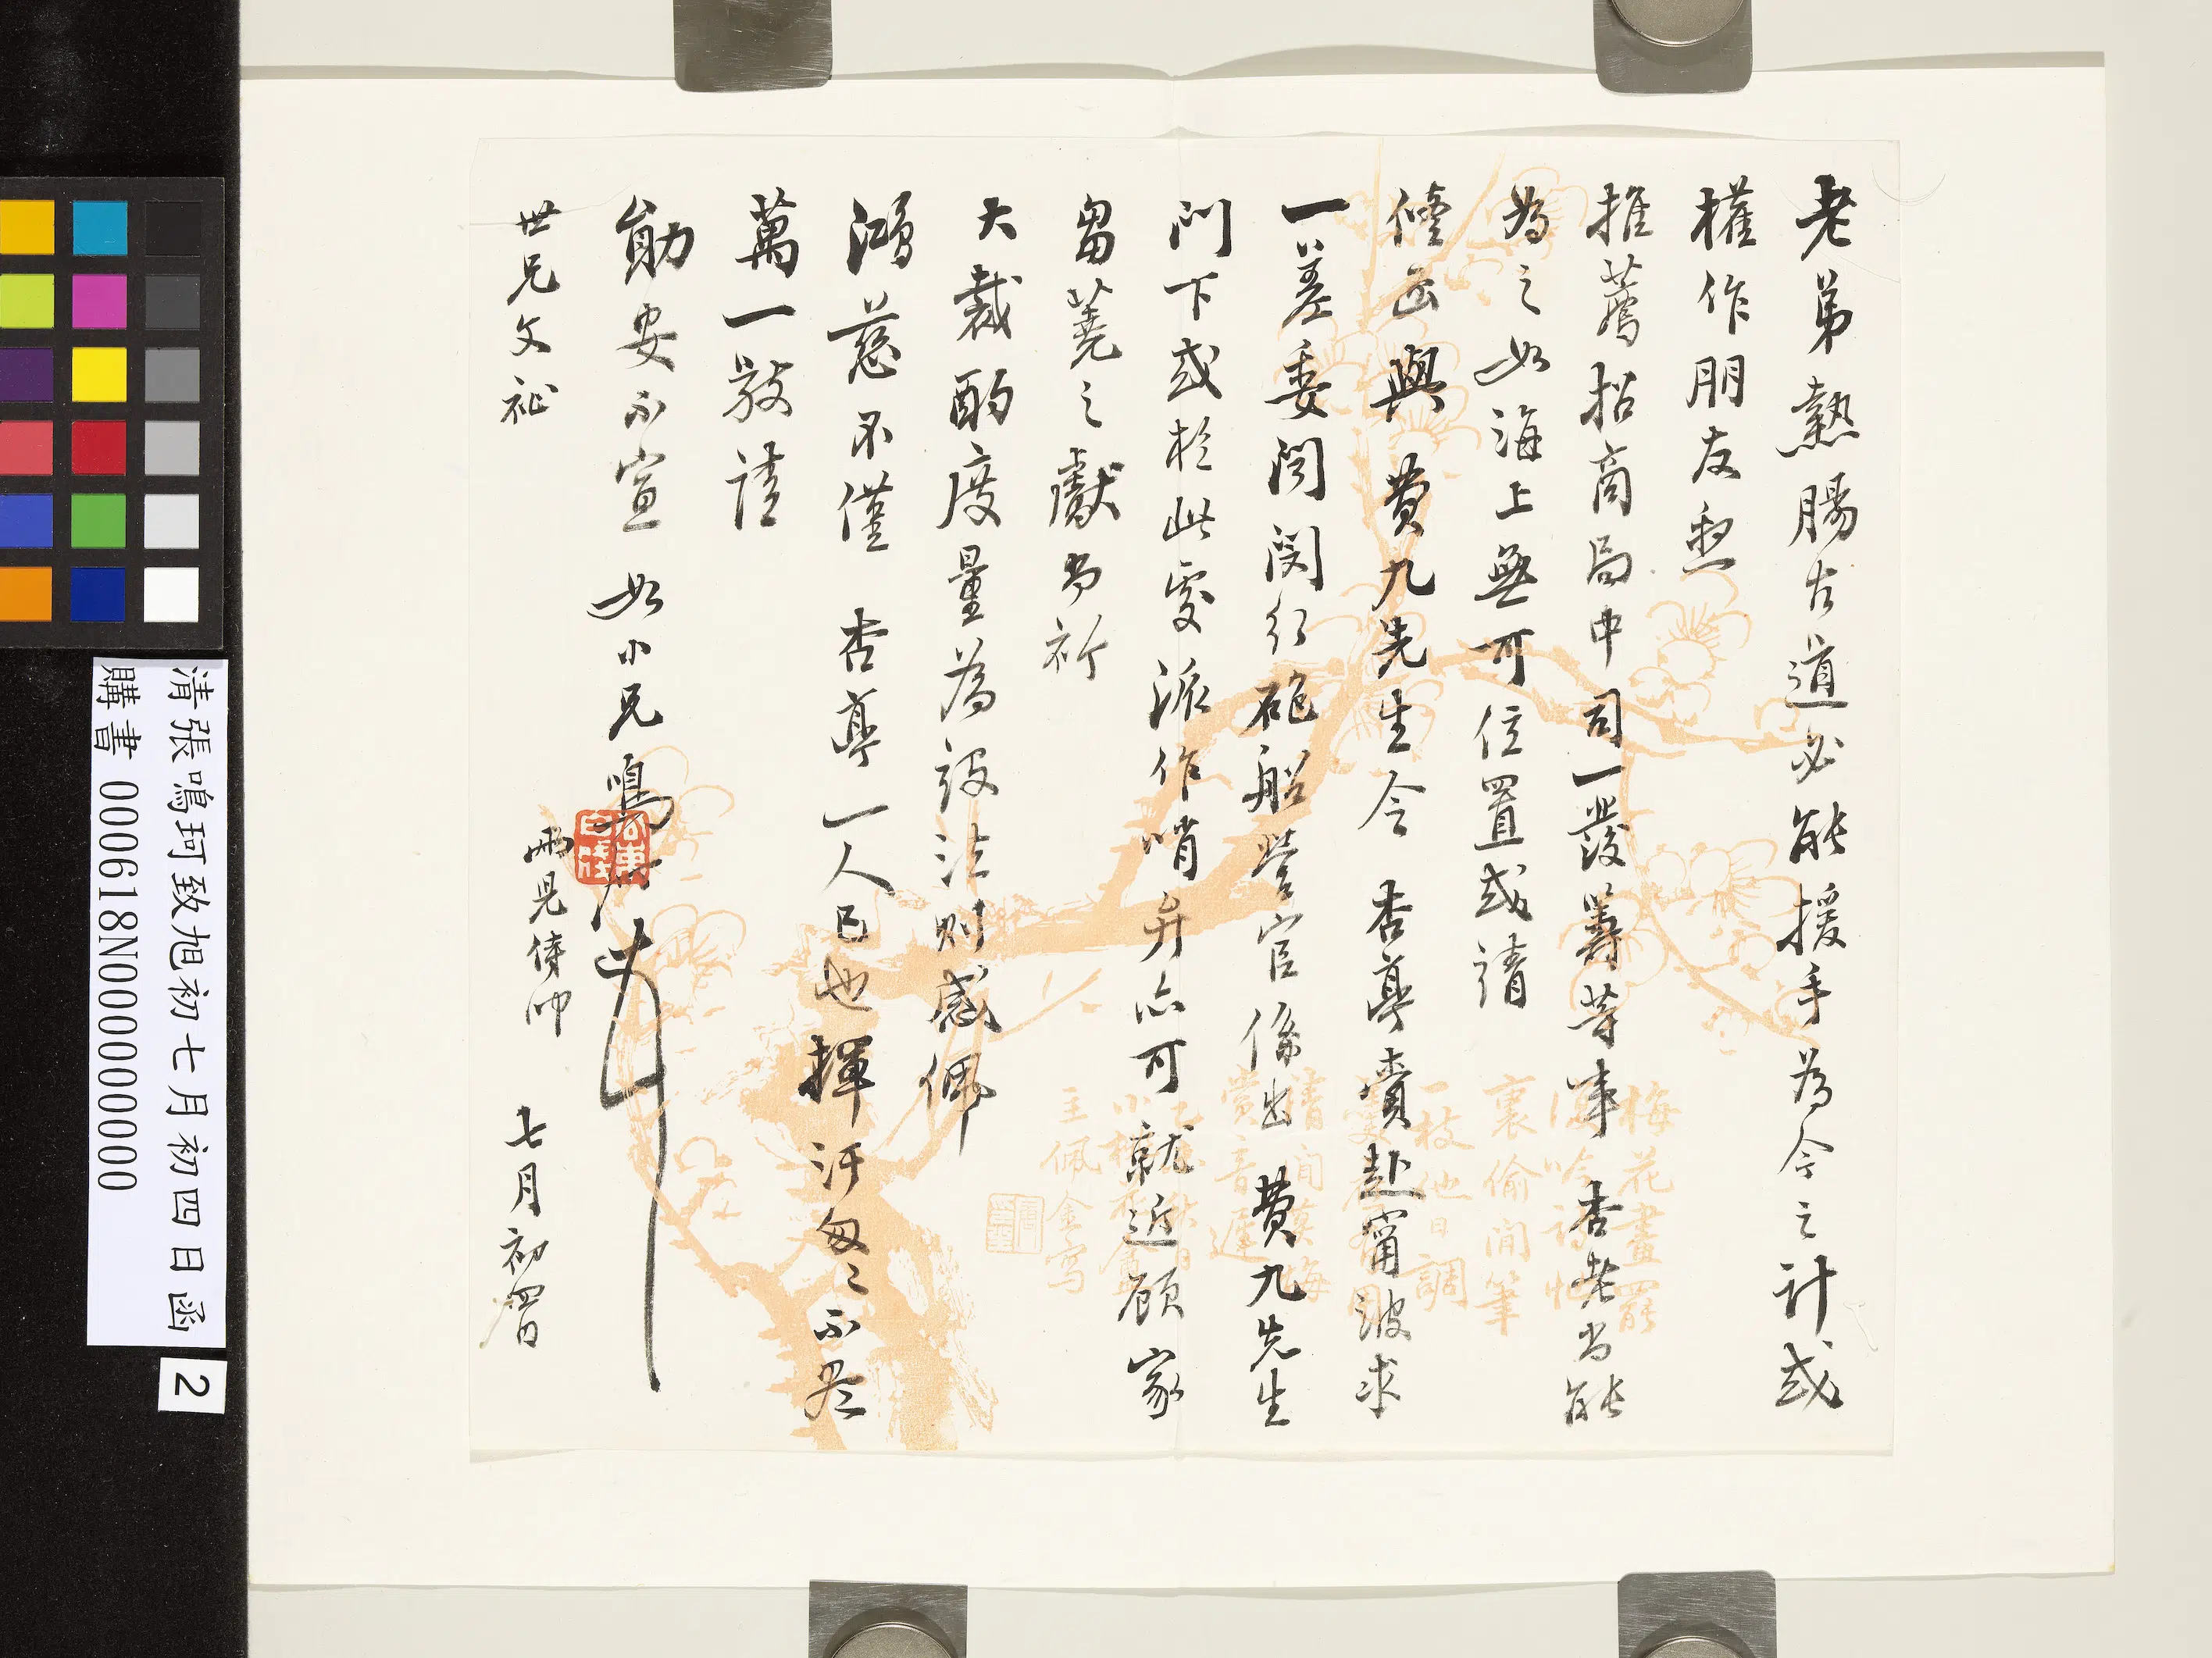 老弟熱腸古道必能援手為今之計或
權作朋友與
推薦招商局中司一發籌等事 杏老尚能
為之如海上無可位置或請
修函與 費九先生令 杏蓀賫赴甯波求
一差委聞閔行砲船營官係出 費九先生
門下或於此處派作哨弁亦可就近顧家
芻蕘之獻尚祈
大裁酌度量為設法則感佩
鴻慈不僅 杏蓀一人已也揮汗匆匆不盡
萬一敬請
勛安不宣 如小兄鳴珂頓首
世兄文祉
兩兒侍叩
七月初四日
梅花畫罷
裏偷閒筆
一枝他日調
清張鳴珂致旭初七月初四日函
購書 000618N000000000
2